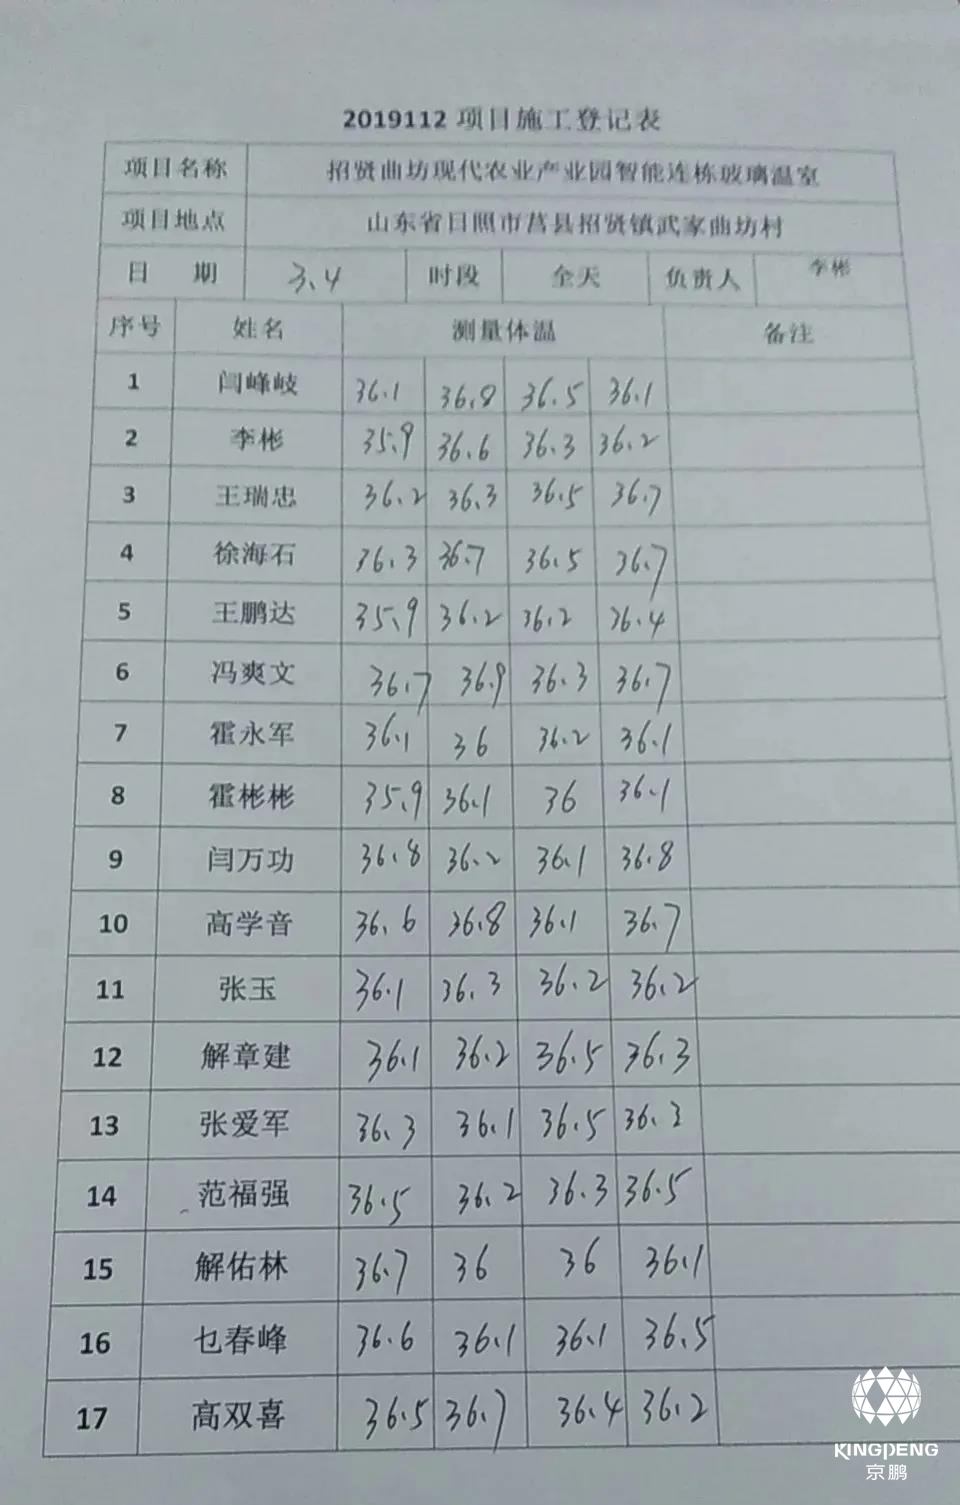 2019112 项目施工登记表
项目名称 招贤曲坊现代农业产业园智能连栋玻璃温室
项目地点 山东省日照市莒县招贤镇武家曲坊村
日 期 3.4 时段 全天 负责人 李彬
序号 姓名 测量体温 备注
1 闫峰岐 36.1 36.8 36.5 36.1
2 李彬 35.9 36.6 36.3 36.2
3 王瑞忠 36.2 36.3 36.5 36.7
4 徐海石 36.3 36.7 36.5 36.7
5 王鹏达 35.9 36.2 36.2 36.4
6 冯爽文 36.7 36.9 36.3 36.7
7 霍永军 36.1 36 36.2 36.1
8 霍彬彬 35.9 36.1 36 36.1
9 闫万功 36.8 36.2 36.1 36.8
10 高学音 36.6 36.8 36.1 36.7
11 张玉 36.1 36.3 36.2 36.2
12 解章建 36.1 36.2 36.5 36.3
13 张爱军 36.3 36.1 36.5 36.3
14 范福强 36.5 36.2 36.3 36.5
15 解佑林 36.7 36 36 36.1
16 乜春峰 36.6 36.1 36.1 36.5
17 高双喜 36.5 36.7 36.4 36.2
KINGPENG
京鹏